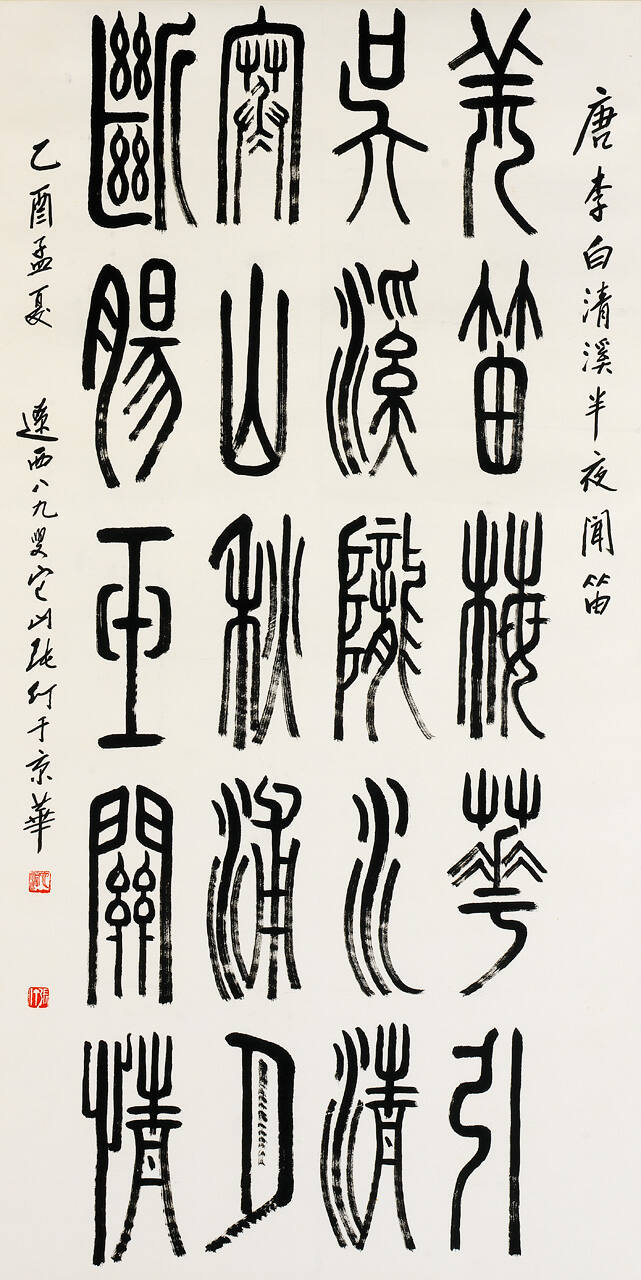 唐李白清溪半夜聞笛
羌笛梅花引
吳溪隴水清
寒山秋浦月
斷腸玉關情
乙酉孟夏 遼西八九叟它山張仃于京華
張仃